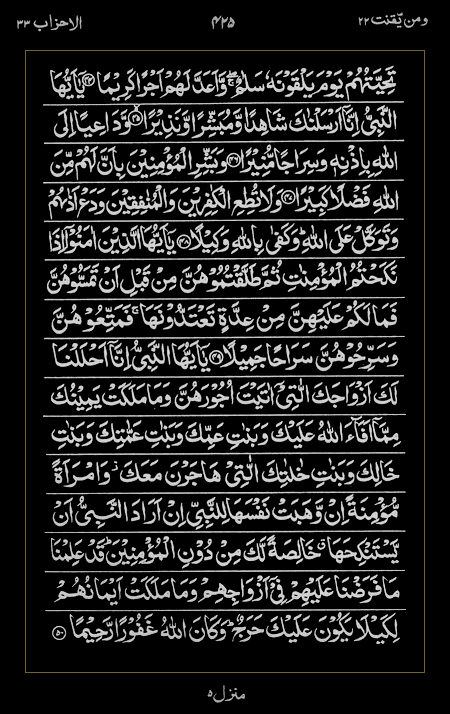 ومن يّقنت ٢٢ ۴۲۵ الاحزاب ٣٣
تَحِيَّتُهُمۡ يَوۡمَ يَلۡقَوۡنَهٗ سَلٰمٌ ۖۚ وَّاَعَدَّ لَهُمۡ اَجۡرًا كَرِيۡمًا ﴿۴۴﴾ يٰۤاَيُّهَا
النَّبِىُّ اِنَّاۤ اَرۡسَلۡنٰكَ شَاهِدًا وَّمُبَشِّرًا وَّنَذِيۡرًا ﴿۴۵﴾ وَّدَاعِيًا اِلَى
اللّٰهِ بِاِذۡنِهٖ وَسِرَاجًا مُّنِيۡرًا ﴿۴۶﴾ وَبَشِّرِ الۡمُؤۡمِنِيۡنَ بِاَنَّ لَهُمۡ مِّنَ
اللّٰهِ فَضۡلًا كَبِيۡرًا ﴿۴۷﴾ وَلَا تُطِعِ الۡكٰفِرِيۡنَ وَالۡمُنٰفِقِيۡنَ وَدَعۡ اَذٰٮهُمۡ
وَتَوَكَّلۡ عَلَى اللّٰهِ ؕ وَكَفٰى بِاللّٰهِ وَكِيۡلًا ﴿۴۸﴾ يٰۤاَيُّهَا الَّذِيۡنَ اٰمَنُوۡۤا اِذَا
نَكَحۡتُمُ الۡمُؤۡمِنٰتِ ثُمَّ طَلَّقۡتُمُوۡهُنَّ مِنۡ قَبۡلِ اَنۡ تَمَسُّوۡهُنَّ
فَمَا لَكُمۡ عَلَيۡهِنَّ مِنۡ عِدَّةٍ تَعۡتَدُّوۡنَهَا ۚ فَمَتِّعُوۡهُنَّ
وَسَرِّحُوۡهُنَّ سَرَاحًا جَمِيۡلًا ﴿۴۹﴾ يٰۤاَيُّهَا النَّبِىُّ اِنَّاۤ اَحۡلَلۡنَا
لَكَ اَزۡوَاجَكَ الّٰتِىۡۤ اٰتَيۡتَ اُجُوۡرَهُنَّ وَمَا مَلَكَتۡ يَمِيۡنُكَ
مِمَّاۤ اَفَآءَ اللّٰهُ عَلَيۡكَ وَبَنٰتِ عَمِّكَ وَبَنٰتِ عَمّٰتِكَ وَبَنٰتِ
خَالِكَ وَبَنٰتِ خٰلٰتِكَ الّٰتِىۡ هَاجَرۡنَ مَعَكَ ؗ وَامۡرَاَةً
مُّؤۡمِنَةً اِنۡ وَّهَبَتۡ نَفۡسَهَا لِلنَّبِىِّ اِنۡ اَرَادَ النَّبِىُّ اَنۡ
يَّسۡتَنۡكِحَهَا ۗ خَالِصَةً لَّكَ مِنۡ دُوۡنِ الۡمُؤۡمِنِيۡنَ ؕ قَدۡ عَلِمۡنَا
مَا فَرَضۡنَا عَلَيۡهِمۡ فِىۡۤ اَزۡوَاجِهِمۡ وَمَا مَلَكَتۡ اَيۡمَانُهُمۡ
لِكَيۡلَا يَكُوۡنَ عَلَيۡكَ حَرَجٌ ؕ وَكَانَ اللّٰهُ غَفُوۡرًا رَّحِيۡمًا ﴿۵۰﴾
منزل ۵